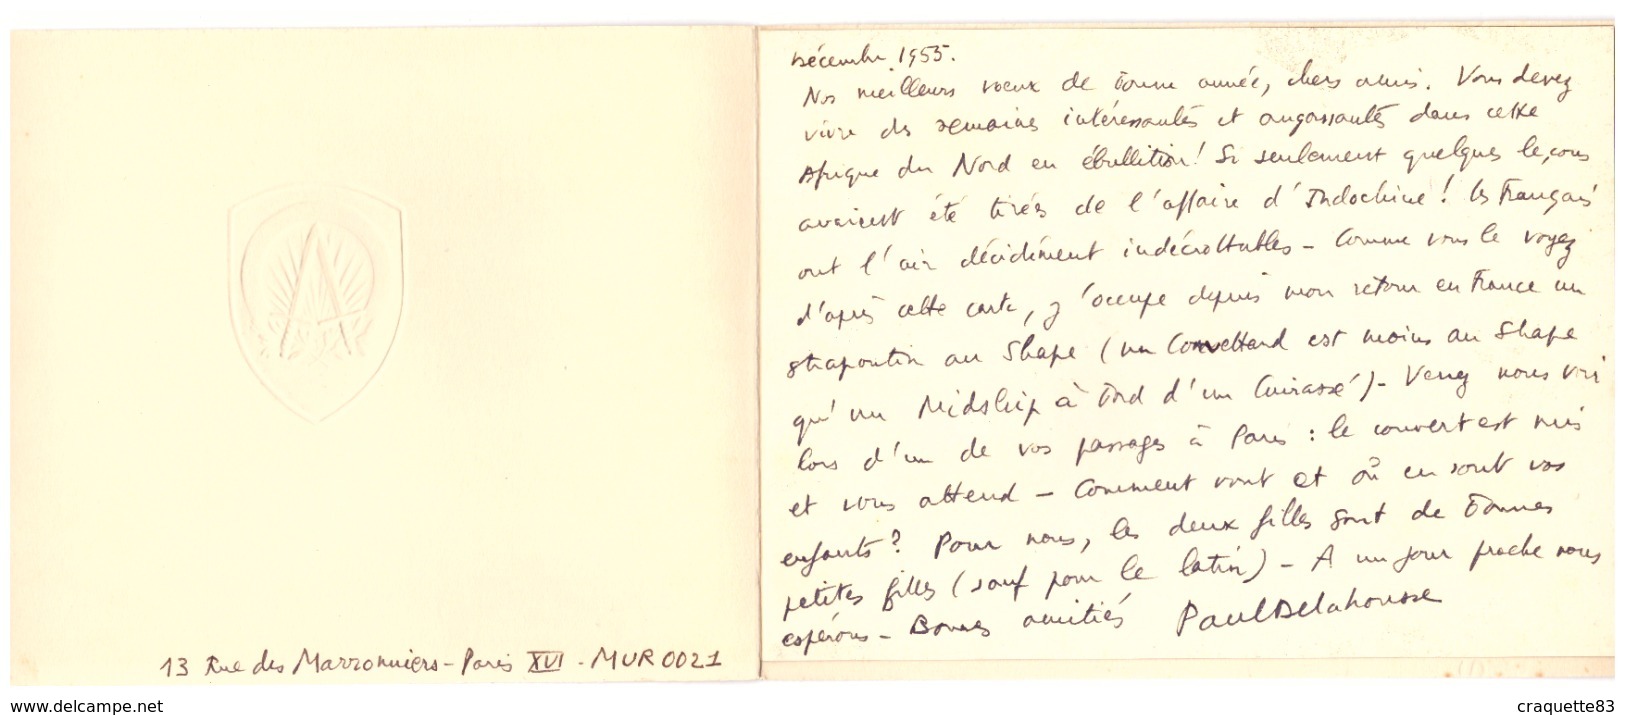 Décembre 1955.
Nos meilleurs voeux de bonne année, chers amis. Vous devez
vivre des semaines intéressantes et angoissantes dans cette
Afrique du Nord en ébullition ! Si seulement quelques leçons
avaient été tirées de l'affaire d'Indochine ! les Français
ont l'air décidément indécrottables - Comme vous le voyez
d'après cette carte, j'occupe depuis mon retour en France un
strapontin au Shape (un Corvettard est moins au Shape
qu'un Midship à bord d'un Cuirassé) - Venez nous voir
lors d'un de vos passages à Paris : le couvert est mis
et vous attend - Comment vont et où en sont vos
enfants ? Pour nous, les deux filles sont de bonnes
petites filles (sauf pour le latin) - A un jour proche nous
espérons - Bonnes amitiés Paul Delahousse
13 Rue des Marronniers - Paris XVI - MUR 0021
www.delcampe.net
craquette83